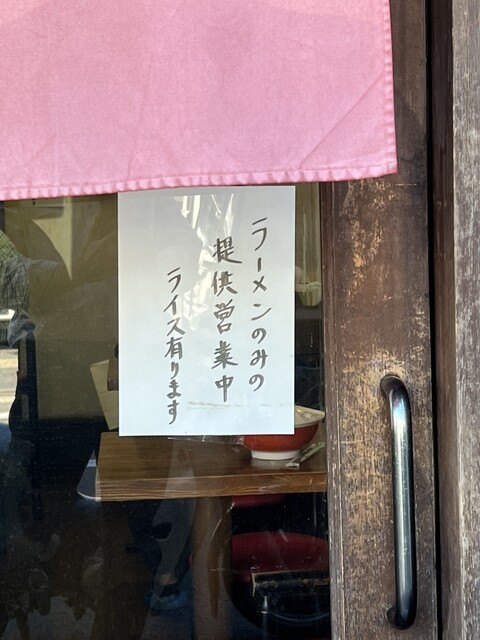 ラーメンのみの
提供営業中
ライス有ります